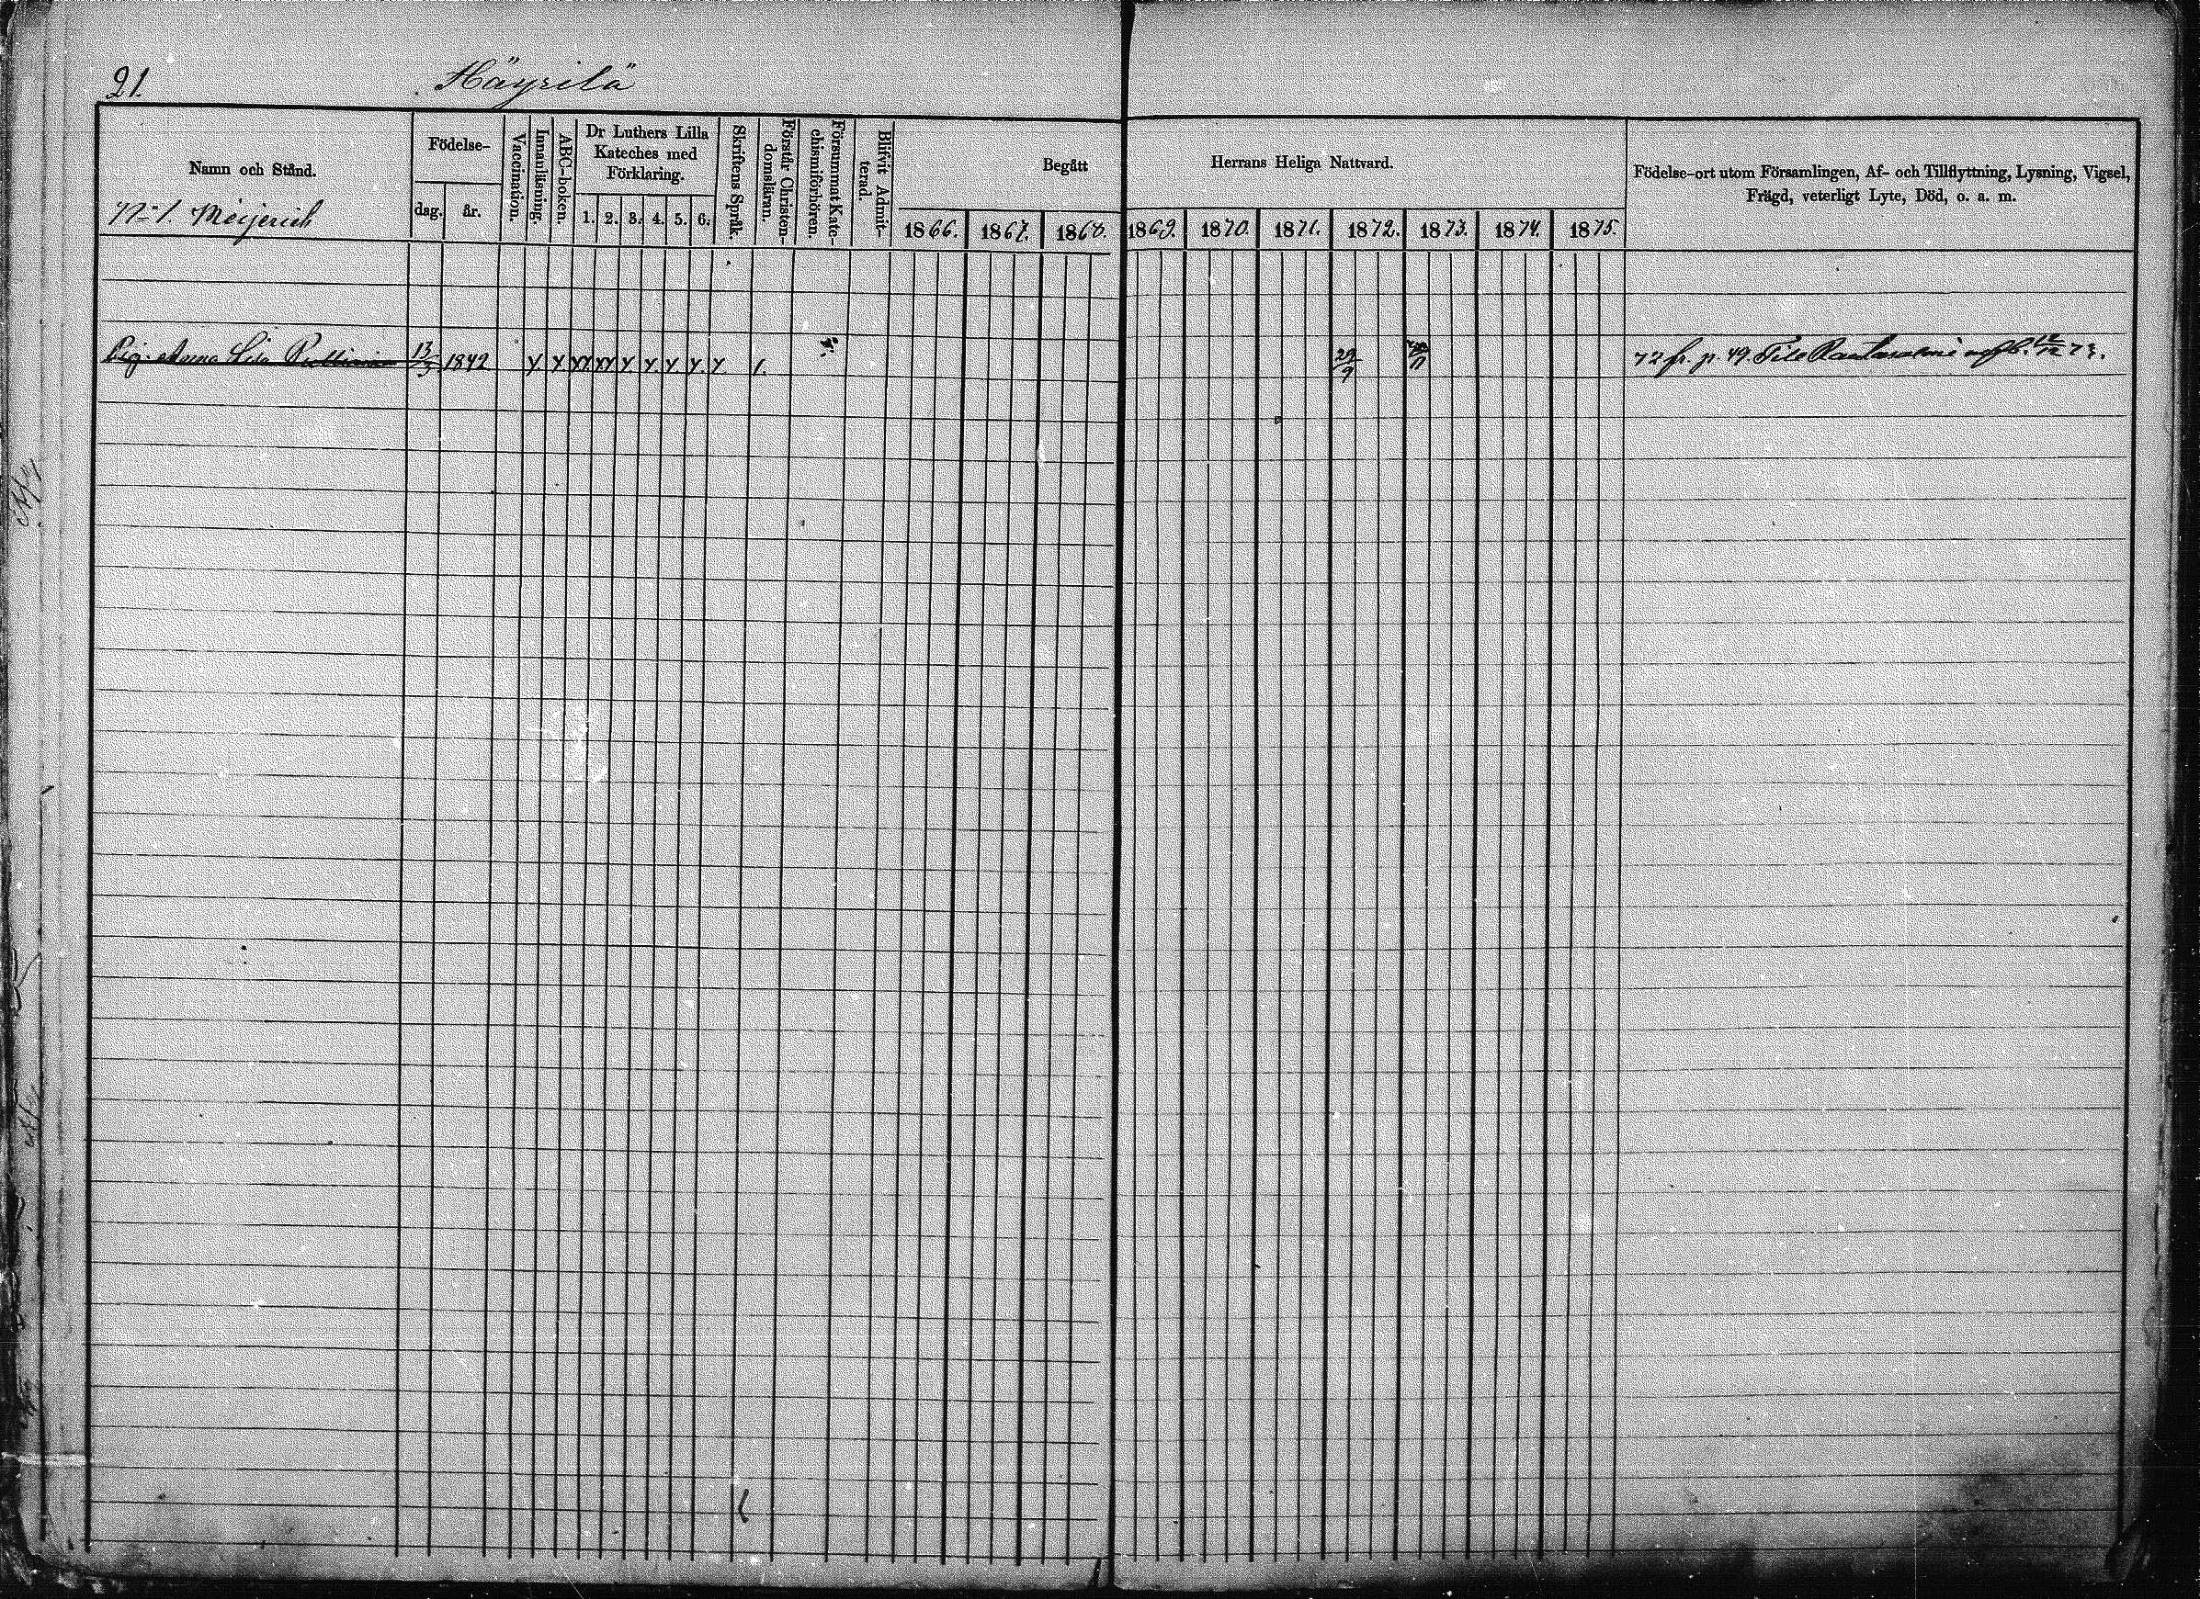 21. Häyrilä
Namn och Stånd.
No 1. Meijerich
Födelse-
dag. år.
Vaccination.
Innanläsning.
ABC-boken.
Dr Luthers Lilla
Kateches med
Förklaring.
1. 2. 3. 4. 5. 6.
Skriftens Språk.
Förstår Christen-
domsläran.
Försummat Kate-
chismiförhören.
Blifvit Admit-
terad.
Begått Herrans Heliga Nattvard.
1866. 1867. 1868. 1869. 1870. 1871. 1872. 1873. 1874. 1875.
Födelse-ort utom Församlingen, Af- och Tillflyttning, Lysning, Vigsel,
Frägd, veterligt Lyte, Död, o. a. m.
Pig. Anna Lisa 13/3 1842 1. 29/9 72 fr. p. 49. Till Rantasalmi 73.